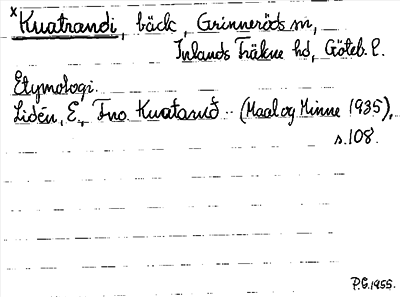 x Kuatrandi, bäck, Grinneröds sn,
Inlands Fräkne hd, Göteb. l.
Etymologi.
Lidén, E., Fno. Kuatand .. (Maal og Minne 1935),
s. 108.
P.G. 1955.